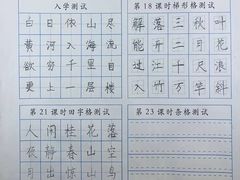 入学测试
白日依山尽
黄河入海流
欲穷千里目
更上一层楼
第18课时梯形格测试
解落三秋叶
能开二月花
过江千尺浪
入竹万竿斜
第21课时田字格测试
人闲桂花落
夜静春山空
月出惊山鸟
第23课时条格测试